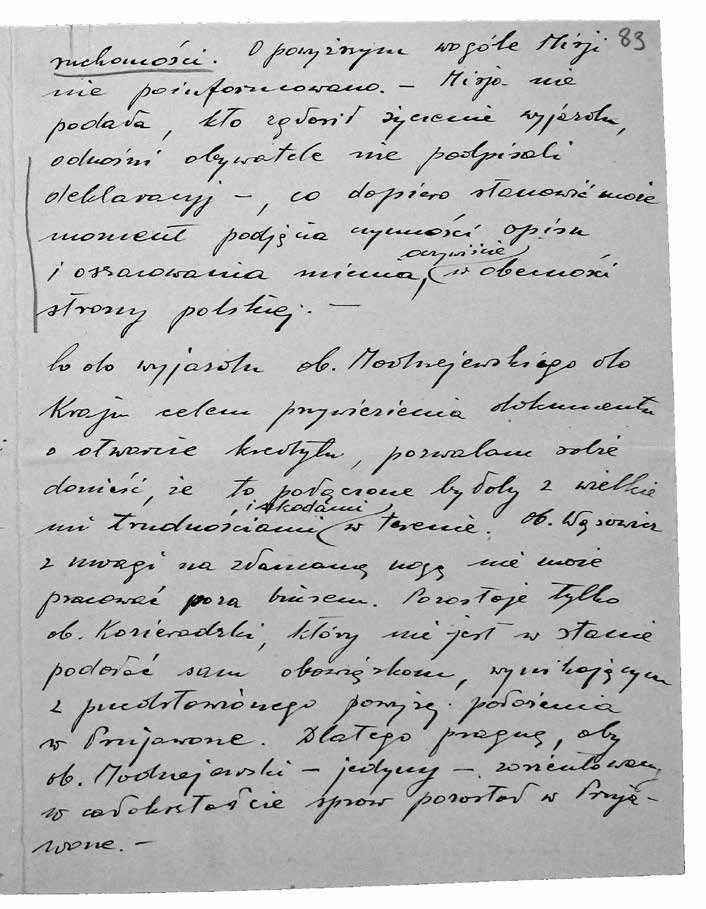 83
ruchomości. O powyższym wogóle Misji
nie poinformowano. – Misja nie
podała, kto zgłosił życzenie wyjazdu,
odnośni obywatele nie podpisali
deklaracyj –, co dopiero stanowić może
moment podjęcia czynności opisu
oczywiście
i oszacowania mienia, w obecności
strony polskiej. –
Co do wyjazdu ob. Modnejewskiego do
Kraju celem przywiezienia dokumentu
o otwarcie kredytu, pozwalam sobie
donieść, że to połączone byłoby z wielkie
i szkodami
mi trudnościami w terenie. Ob. Wąsowicz
z uwagi na złamaną nogę nie może
pracować poza biurem. Pozostaje tylko
ob. Kosieradzki, który nie jest w stanie
podołać sam obowiązkom, wynikającym
z przedstawionego powyżej położenia
w Prużawone. Dlatego pragnę, aby
ob. Modnejewski – jedyny – zorientowany
w całokształcie spraw pozostał w Pruża–
wone. –